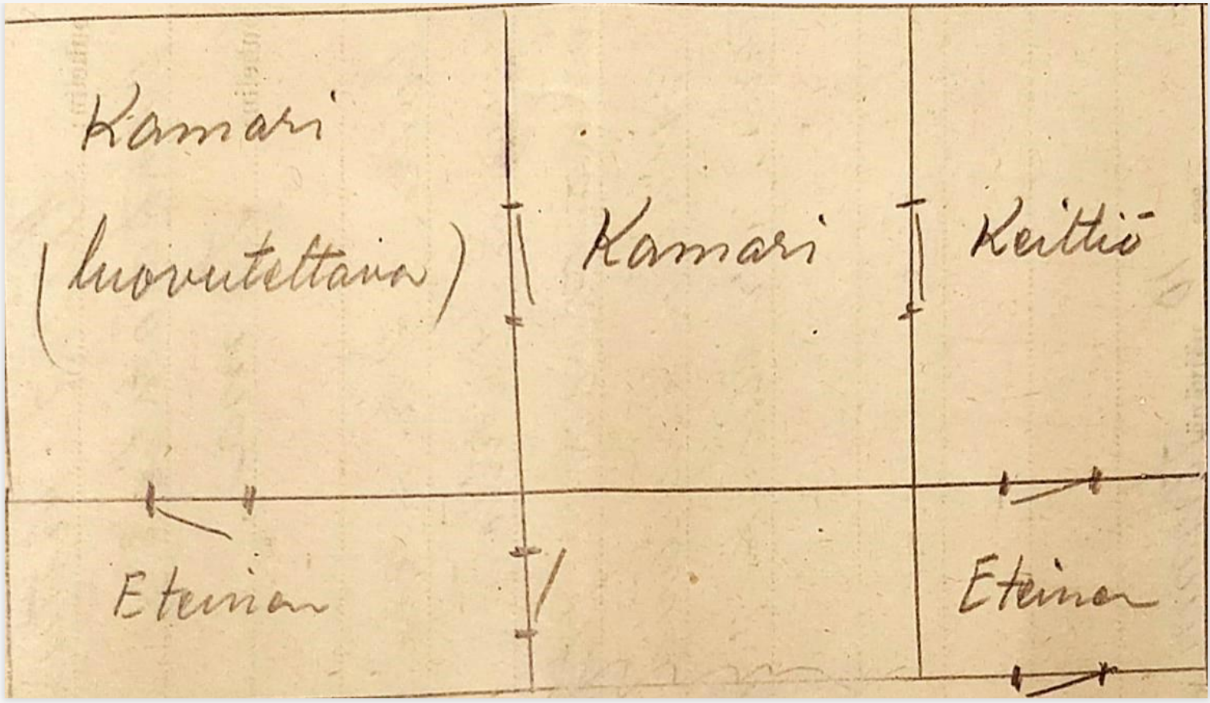 Kamari
(luovutettava)
Kamari
Keittiö
Eteinen
Eteinen